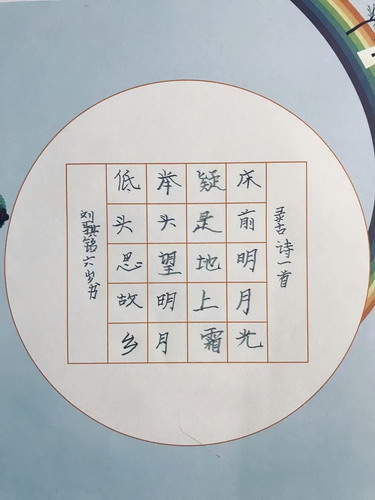 录古诗一首
床前明月光
疑是地上霜
举头望明月
低头思故乡
六岁书